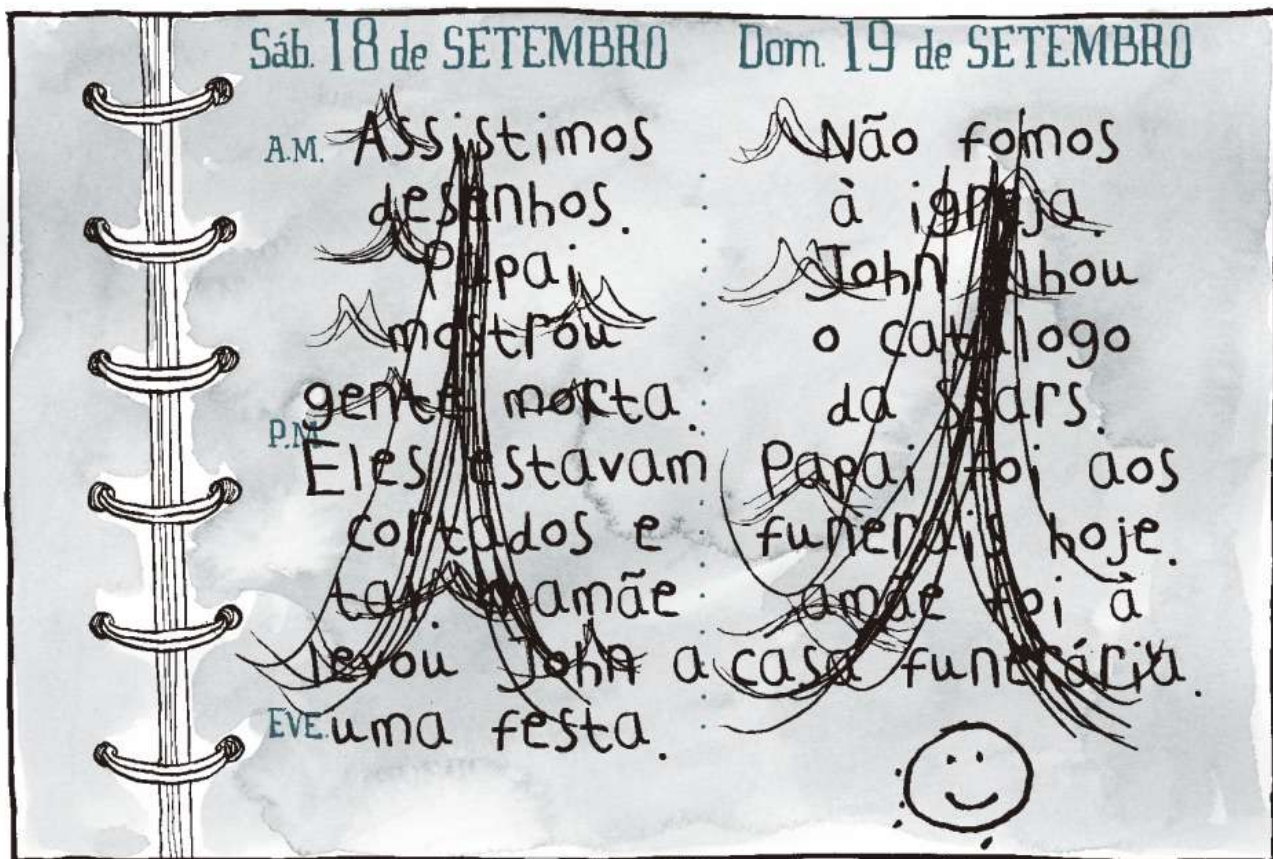 Sáb. 18 de SETEMBRO
A.M. Assistimos
desenhos.
Papai
mostrou
gente morta.
P.M.
Eles estavam
cortados e
tal. Mamãe
levou John a
EVE. uma festa.
Dom. 19 de SETEMBRO
Não fomos
à igreja.
John olhou
o catálogo
da Sears.
Papai foi aos
funerais hoje.
amãe foi à
casa funerária.